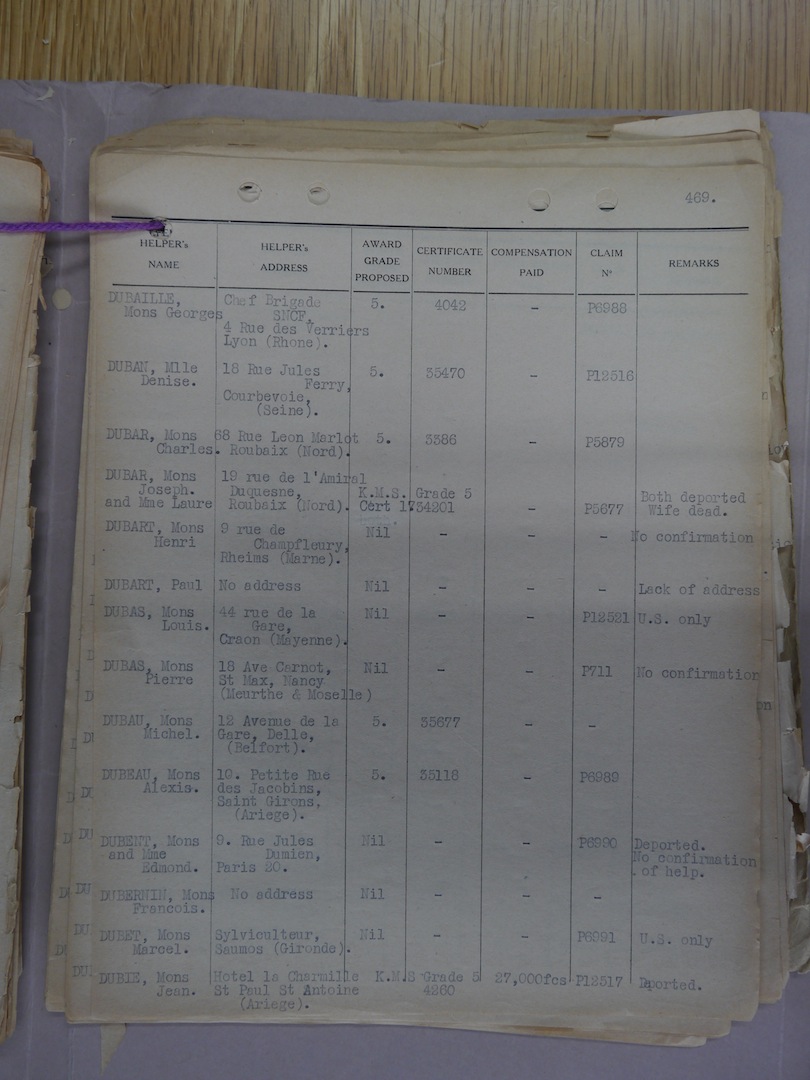 469.
HELPER's NAME HELPER's ADDRESS AWARD GRADE PROPOSED CERTIFICATE NUMBER COMPENSATION PAID CLAIM Nº REMARKS
DUBAILLE, Chef Brigade 5. 4042 - P6988
Mons Georges SNCF,
4 Rue des Verriers
Lyon (Rhone).
DUBAN, Mlle 18 Rue Jules 5. 35470 - P12516
Denise. Ferry,
Courbevoie,
(Seine).
DUBAR, Mons 68 Rue Leon Marlot 5. 3386 - P5879
Charles. Roubaix (Nord).
DUBAR, Mons 19 rue de l'Amiral
Joseph. Duquesne, K.M.S. Grade 5 Both deported
and Mme Laure Roubaix (Nord). Cert 1734201 P5677 Wife dead.
DUBART, Mons 9 rue de Nil - - - No confirmation
Henri Champfleury,
Rheims (Marne).
DUBART, Paul No address Nil - - - Lack of address
DUBAS, Mons 44 rue de la Nil - - P12521 U.S. only
Louis. Gare,
Craon (Mayenne).
DUBAS, Mons 18 Ave Carnot, Nil - - P711 No confirmation
Pierre St Max, Nancy
(Meurthe & Moselle)
DUBAU, Mons 12 Avenue de la 5. 35677 - -
Michel. Gare, Delle,
(Belfort).
DUBEAU, Mons 10. Petite Rue 5. 35118 - P6989
Alexis. des Jacobins,
Saint Girons,
(Ariege).
DUBENT, Mons 9. Rue Jules Nil - - P6990 Deported.
and Mme Dumien, No confirmation
Edmond. Paris 20. of help.
DUBERNIN, Mons No address Nil - - -
Francois.
DUBET, Mons Sylviculteur, Nil - - P6991 U.S. only
Marcel. Saumos (Gironde).
DUBIE, Mons Hotel la Charmille K.M.S Grade 5 27,000fcs P12517 Dported.
Jean. St Paul St Antoine 4260
(Ariege).